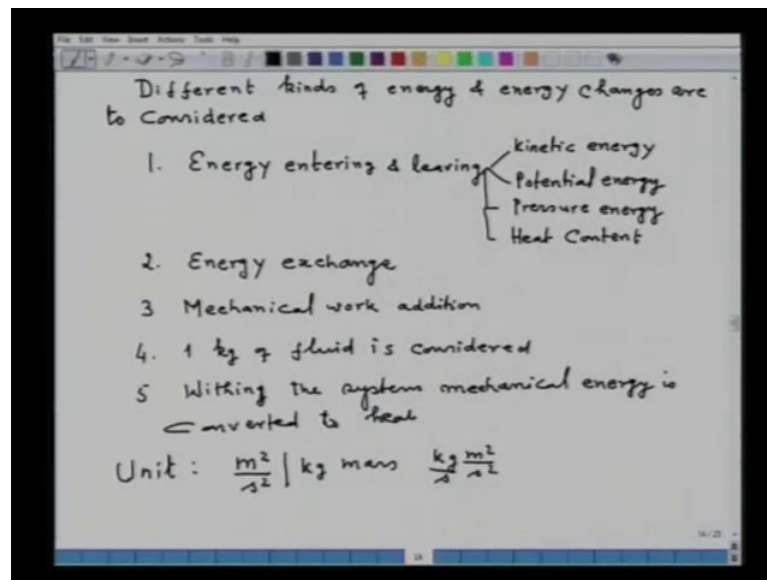 File Edit View Insert Actions Tools Help
Different kinds of energy & energy changes are
to Considered
1. Energy entering & leaving
kinetic energy
Potential energy
Pressure energy
Heat Content
2. Energy exchange
3 Mechanical work addition
4. 1 kg of fluid is considered
5 Withing the system mechanical energy is
converted to heat
Unit : m²/s² | kg mass kg/s m²/s²
14/25
14